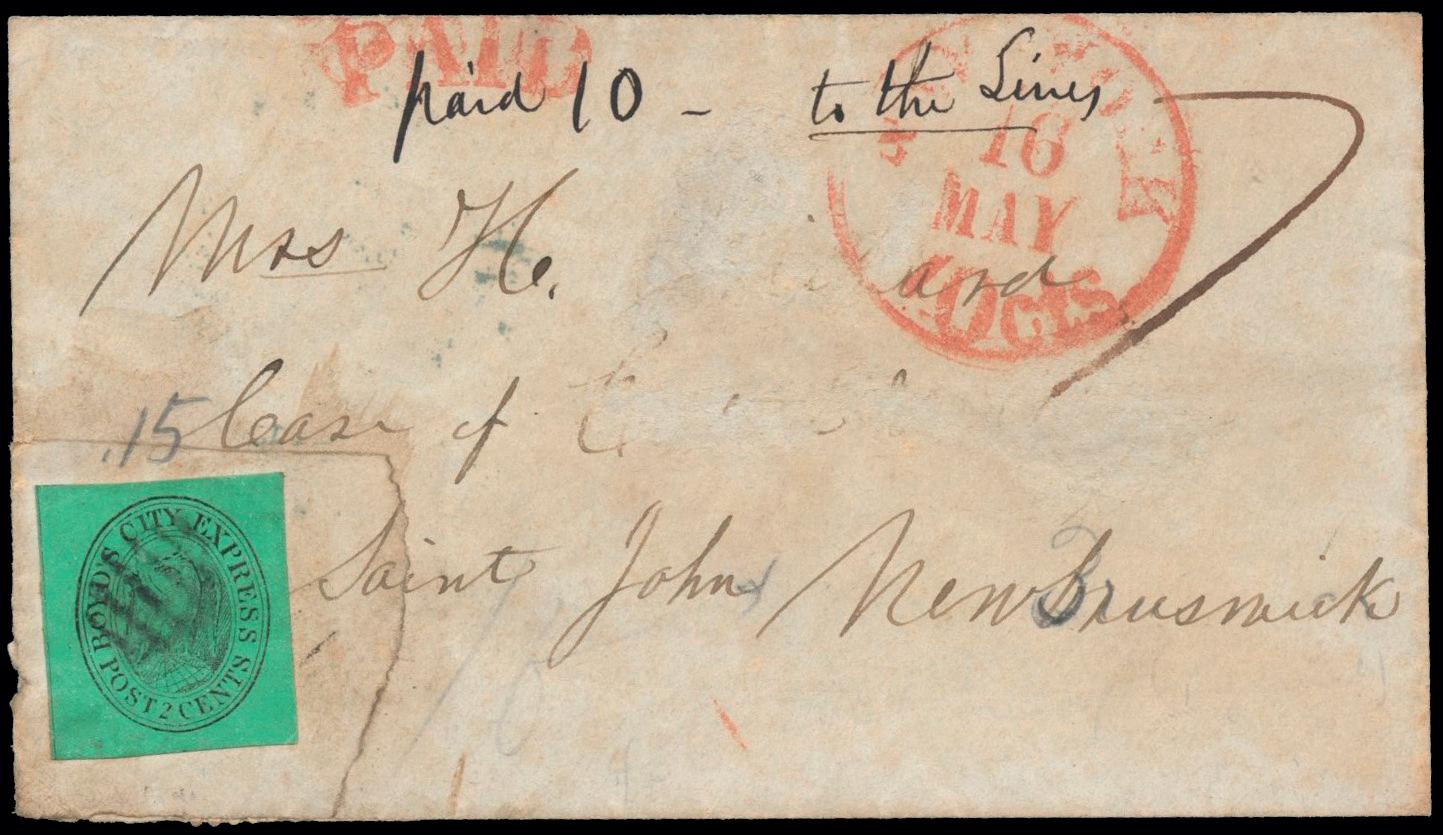 PAID
paid 10 - to the Lines
NEW YORK
16
MAY
10cts
Mrs H.
Care of
.15
Saint John Newbruswick
BOYD'S CITY EXPRESS POST 2 CENTS